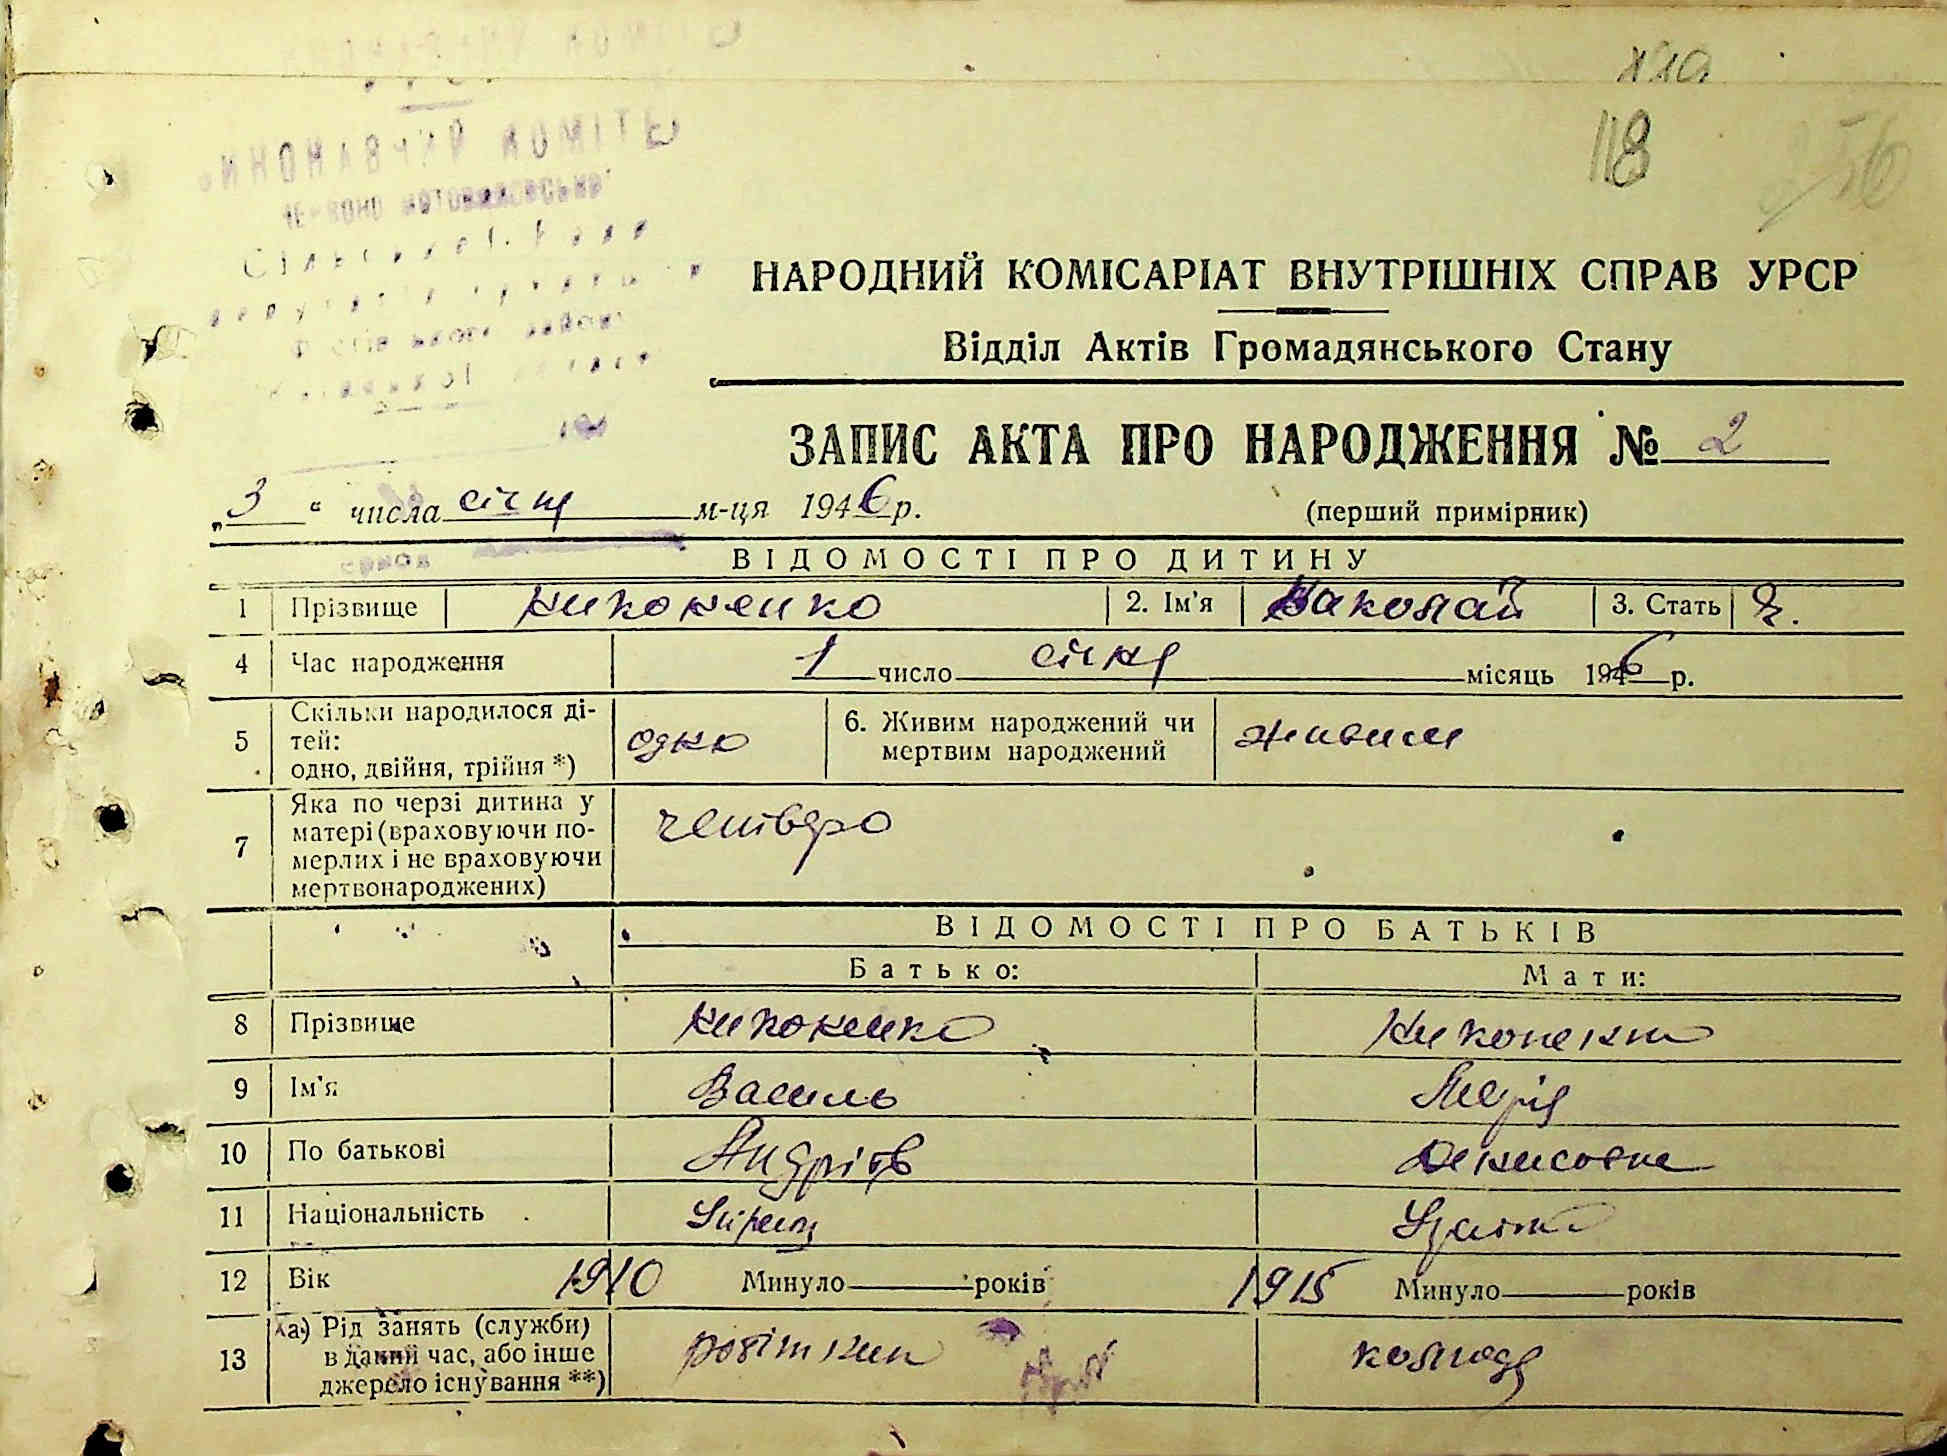 118
НАРОДНИЙ КОМІСАРІАТ ВНУТРІШНІХ СПРАВ УРСР
Відділ Актів Громадянського Стану
ЗАПИС АКТА ПРО НАРОДЖЕННЯ № 2
„3“ числа січня м-ця 1946 р. (перший примірник)
ВІДОМОСТІ ПРО ДИТИНУ
1 Прізвище Никоненко 2. Ім'я Николай 3. Стать Ч.
4 Час народження 1 число січня місяць 1946 р.
5 Скільки народилося ді-
тей:
одно, двійня, трійня *) одно 6. Живим народжений чи
мертвим народжений живим
7 Яка по черзі дитина у
матері (враховуючи по-
мерлих і не враховуючи
мертвонароджених) четверо
ВІДОМОСТІ ПРО БАТЬКІВ
Батько: Мати:
8 Прізвище Никоненко Никоненко
9 Ім'я Василь Марія
10 По батькові Андріів Денисовна
11 Національність
12 Вік 1910 Минуло років 1915 Минуло років
13 а) Рід занять (служби)
в даний час, або інше
джерело існування **) робітник